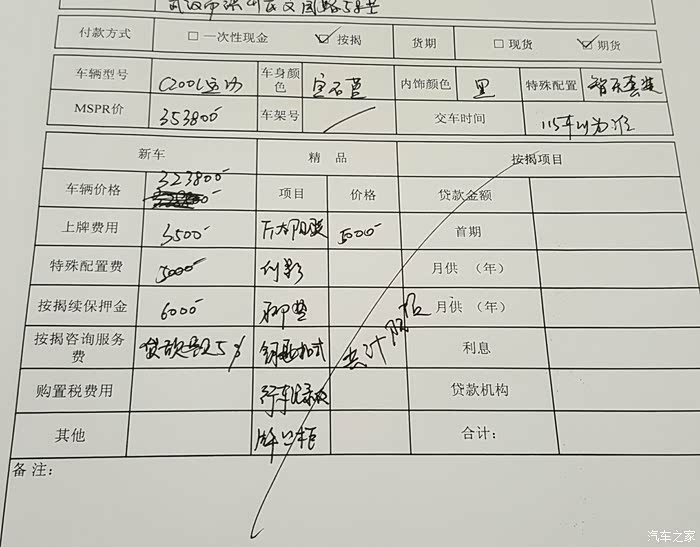 付款方式 □一次性现金 ☑按揭 货期 □现货 ☑期货
车辆型号 C200L运动 车身颜色 宝石蓝 内饰颜色 黑 特殊配置
MSPR价 353800 车架号 交车时间
新车 精品 按揭项目
车辆价格 323800 项目 价格 贷款金额
上牌费用 3500 5000 首期
特殊配置费 5000 月供（年）
按揭续保押金 6000 脚垫 月供（年）
按揭咨询服务费 5% 利息
购置税费用 行车记录仪 贷款机构
其他 合计：
备注：
汽车之家